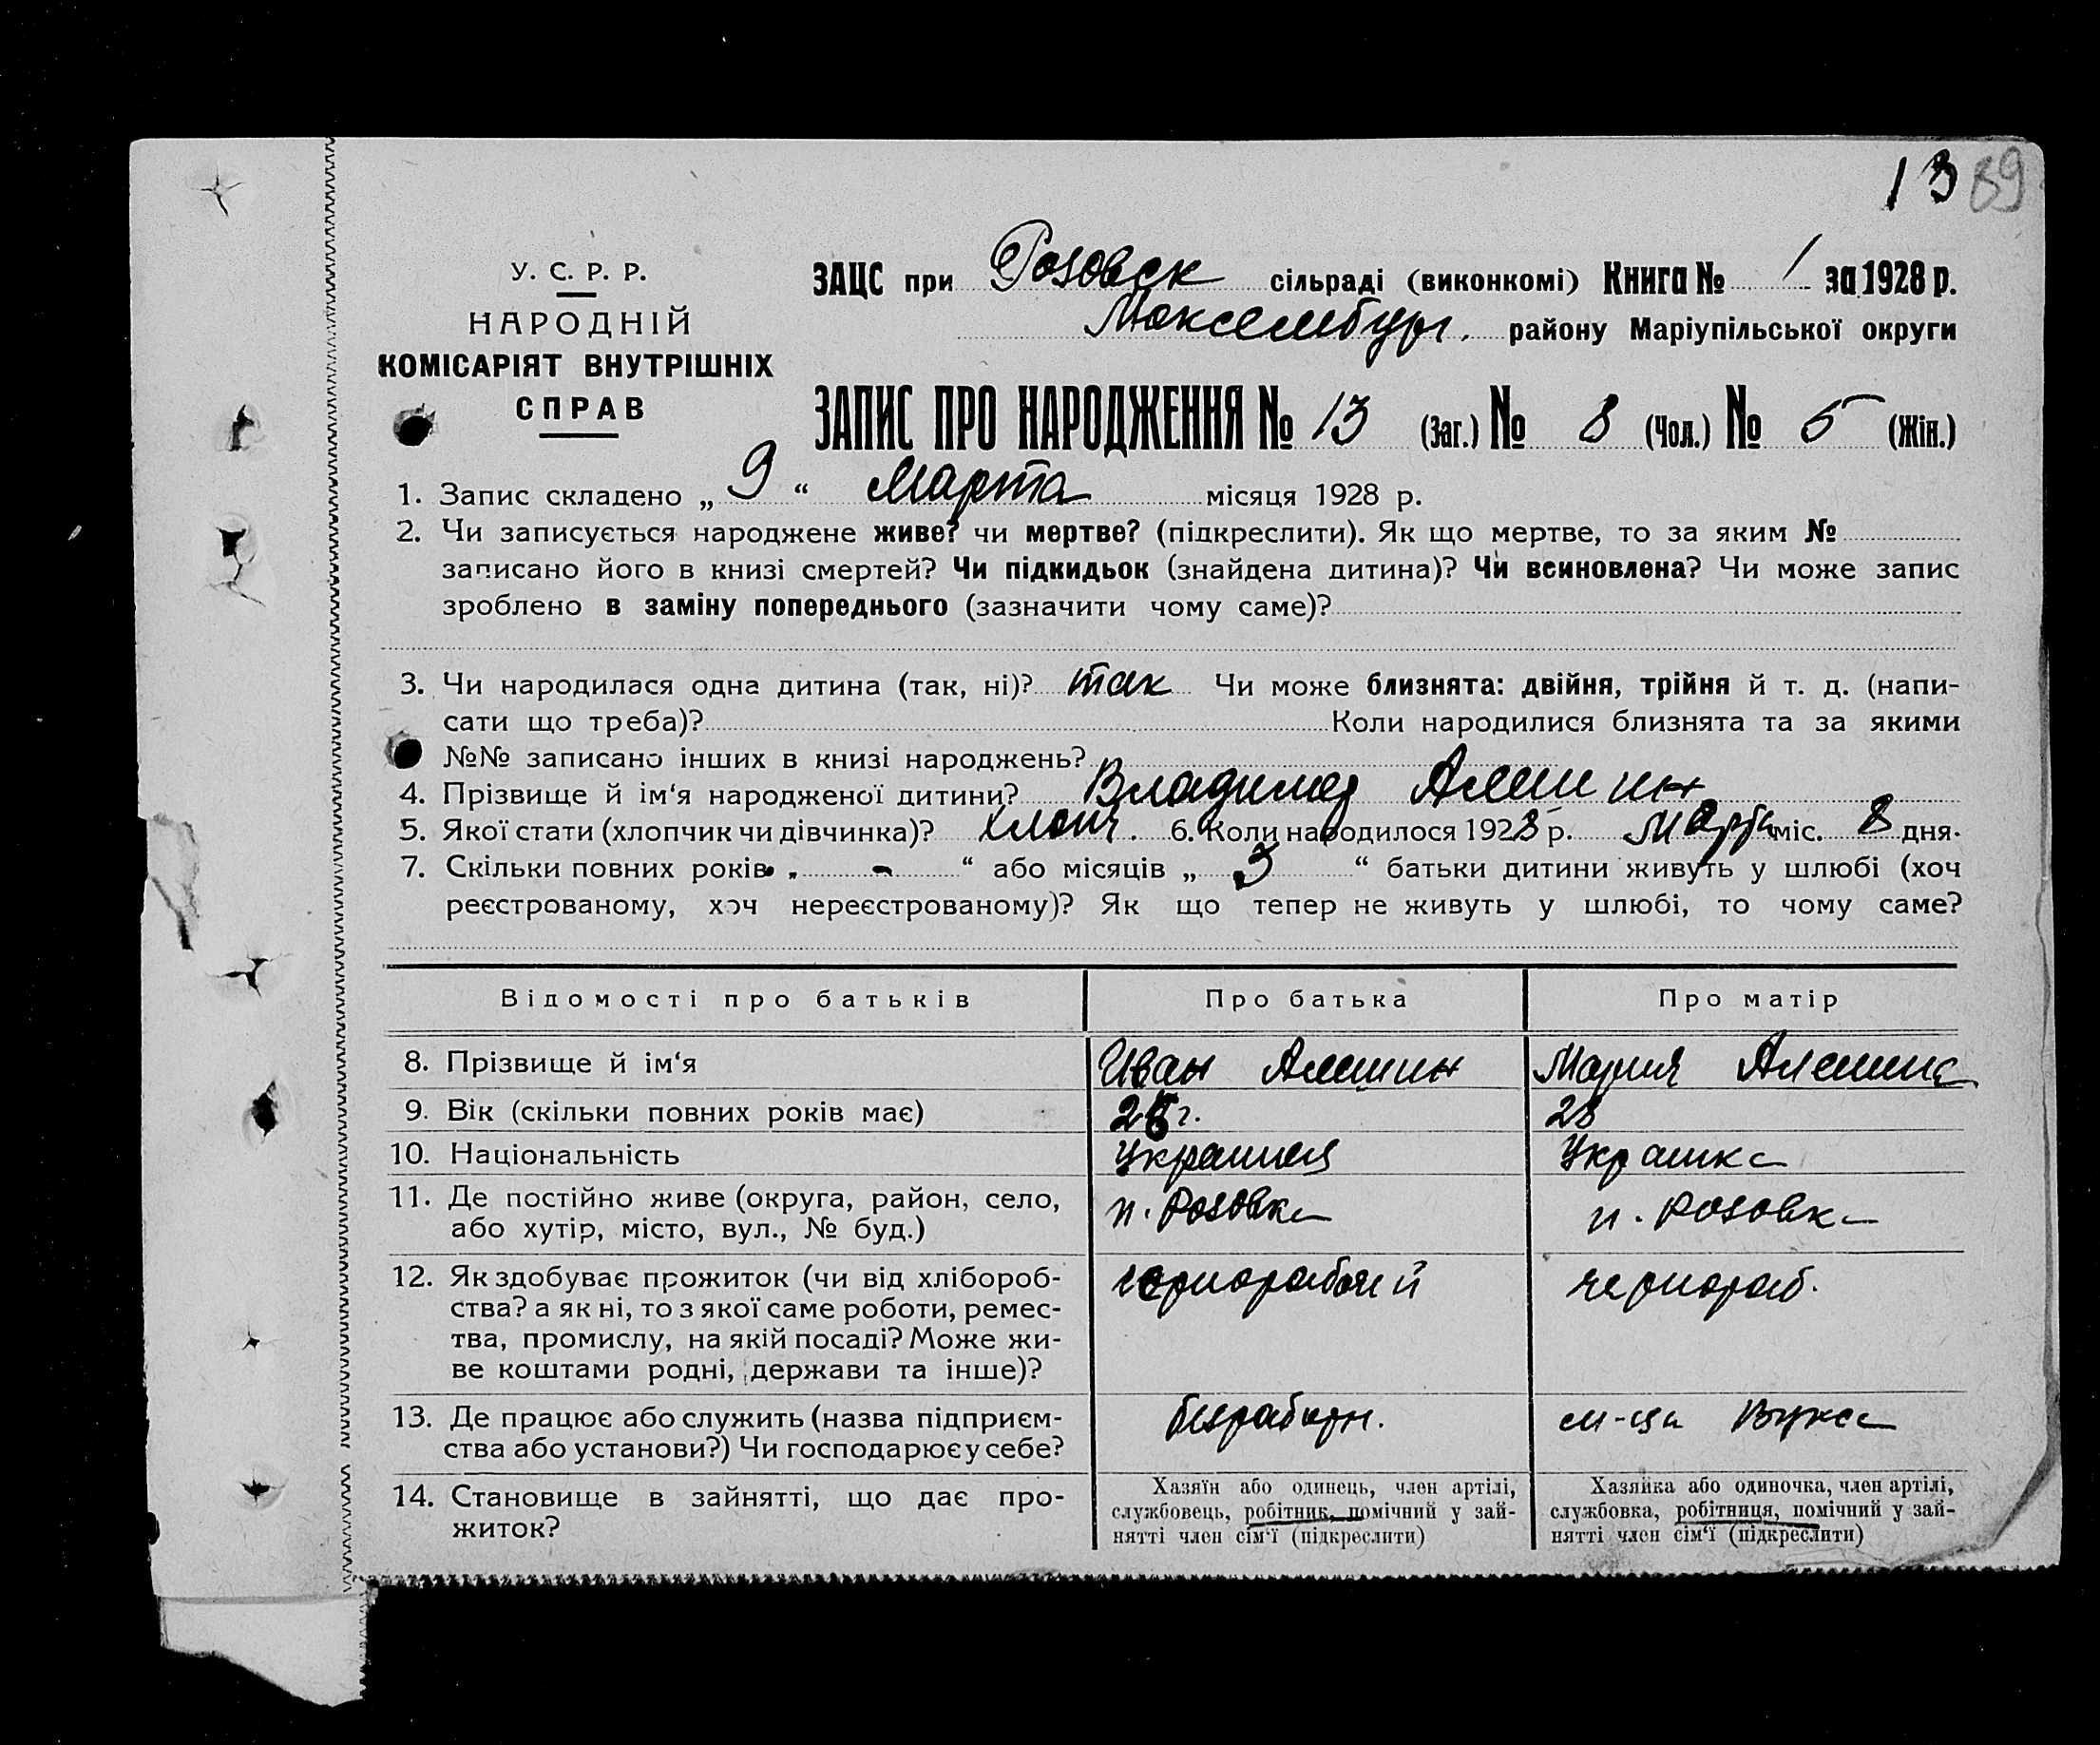 13 39
У. С. Р. Р.
НАРОДНІЙ
КОМІСАРІЯТ ВНУТРІШНІХ
СПРАВ
ЗАЦС при Розовск сільраді (виконкомі) Книга № 1 за 1928 р.
Моксембург. району Маріупільської округи
ЗАПИС ПРО НАРОДЖЕННЯ № 13 (Заг.) № 8 (Чол.) № 5 (Жін.)
1. Запис складено „ 9 “ Марта місяця 1928 р.
2. Чи записується народжене живе? чи мертве? (підкреслити). Як що мертве, то за яким №
записано його в книзі смертей? Чи підкидьок (знайдена дитина)? Чи всиновлена? Чи може запис
зроблено в заміну попереднього (зазначити чому саме)?
3. Чи народилася одна дитина (так, ні)? так Чи може близнята: двійня, трійня й т. д. (напи-
сати що треба)? Коли народилися близнята та за якими
№№ записано інших в книзі народжень?
4. Прізвище й ім‘я народженої дитини? Владимер Алешин
5. Якої стати (хлопчик чи дівчинка)? хлопч. 6. Коли народилося 1928 р. Марта міс. 8 дня.
7. Скільки повних років „ - “ або місяців „ 3 “ батьки дитини живуть у шлюбі (хоч
реєстрованому, хоч нереєстрованому)? Як що тепер не живуть у шлюбі, то чому саме?
Відомості про батьків Про батька Про матір
8. Прізвище й ім‘я Иван Алешин Мария Алешина
9. Вік (скільки повних років має) г. 28
10. Національність Украинец Украинка
11. Де постійно живе (округа, район, село,
або хутір, місто, вул., № буд.) п. Розовка п. Розовка
12. Як здобуває прожиток (чи від хлібороб-
ства? а як ні, то з якої саме роботи, ремес-
тва, промислу, на якій посаді? Може жи-
ве коштами родні, держави та інше)? чернорабочий чернораб.
13. Де працює або служить (назва підприєм-
ства або установи?) Чи господарює у себе? безработн. м-ца
14. Становище в зайнятті, що дає про-
житок?
Хазяїн або одинець, член артілі,
службовець, робітник, помічний у зай-
нятті член сім‘ї (підкреслити)
Хазяйка або одиночка, член артілі,
службовка, робітниця, помічний у зай-
нятті член сім‘ї (підкреслити)